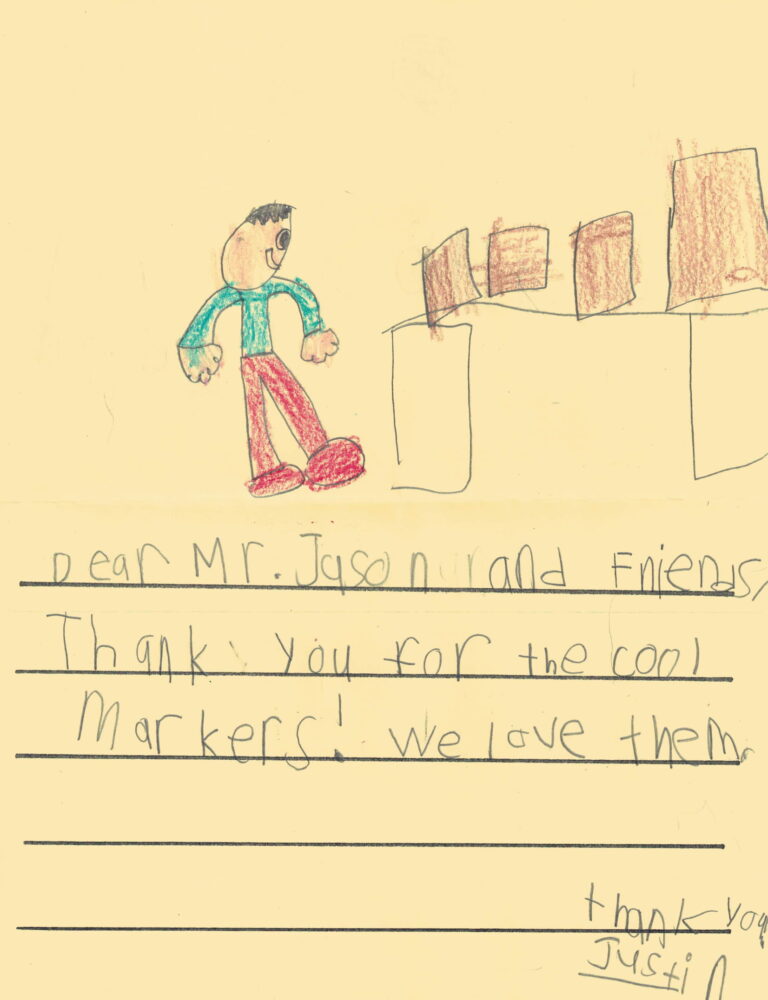 Dear Mr. Jason and Friends,
Thank you for the cool
Markers! We love them.
thank you
Justin